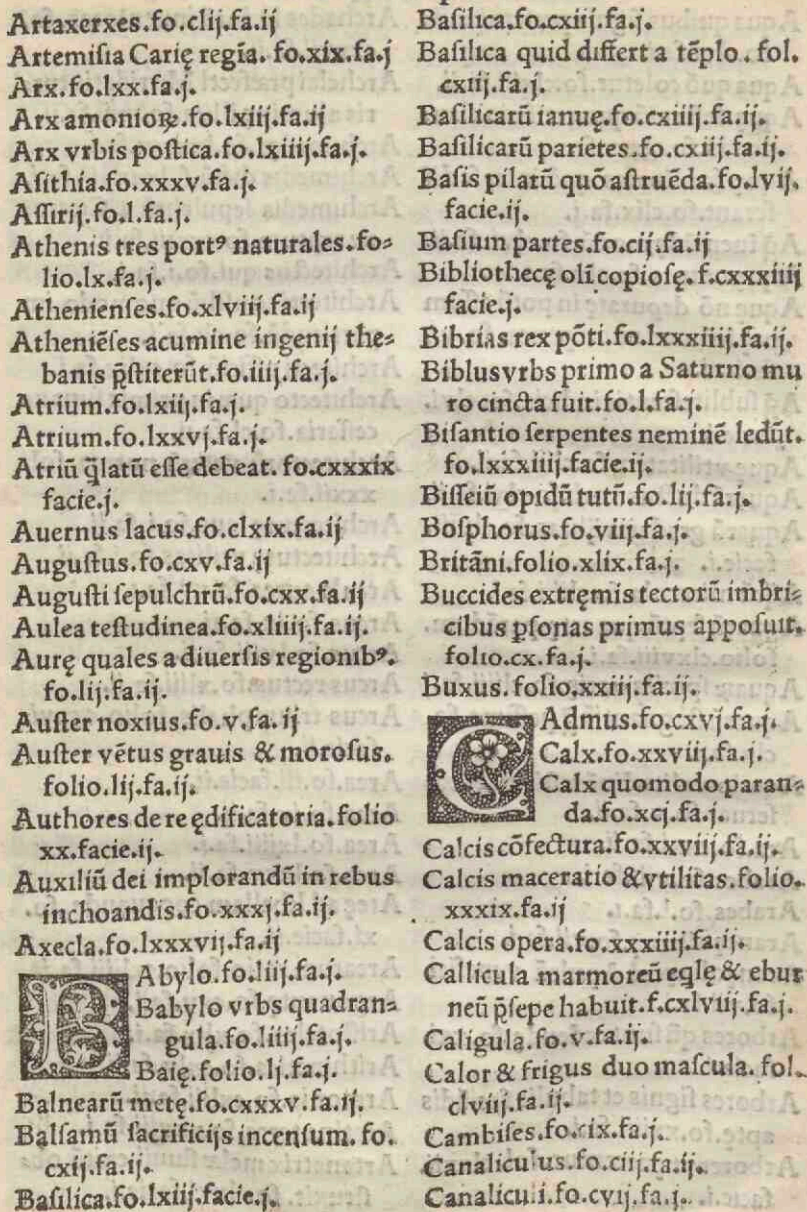 Artaxerxes.fo.clij.fa.ij
Artemiſia Carię regia. fo.xix.fa.j
Arx.fo.lxx.fa.j.
Arx amonioꝝ.fo.lxiij.fa.ij
Arx vrbis poſtica.fo.lxiiij.fa.j.
Aſithia.fo.xxxv.fa.j.
Aſſirij.fo.l.fa.j.
Athenis tres portꝰ naturales.fo⸗
lio.lx.fa.j.
Athenienſes.fo.xlviij.fa.ij
Atheniēſes acumine ingenij the⸗
banis p̄ſtiterūt.fo.iiij.fa.j.
Atrium.fo.lxiij.fa.j.
Atrium.fo.lxxvj.fa.j.
Atriū q̄latū eſſe debeat. fo.cxxxix
facie.j.
Auernus lacus.fo.clxix.fa.ij
Auguſtus.fo.cxv.fa.ij
Auguſti ſepulchrū.fo.cxx.fa.ij
Aulea teſtudinea.fo.xliiij.fa.ij.
Aurę quales a diuerſis regionibꝰ.
fo.lij.fa.ij.
Auſter noxius.fo.v.fa.ij
Auſter vētus grauis & moroſus.
folio.lij.fa.ij.
Authores de re ędificatoria.folio
xx.facie.ij.
Auxiliū dei implorandū in rebus
inchoandis.fo.xxxj.fa.ij.
Axecla.fo.lxxxvij.fa.ij
BAbylo.fo.liij.fa.j.
Babylo vrbs quadran⸗
gula.fo.liiij.fa.j.
Baię.folio.lj.fa.j.
Balnearū metę.fo.cxxxv.fa.ij.
Balſamū ſacrificijs incenſum. fo.
cxij.fa.ij.
Baſilica.fo.lxiij.facie.j.
Baſilica.fo.cxiij.fa.j.
Baſilica quid differt a tēplo. fol.
cxiij.fa.j.
Baſilicarū ianuę.fo.cxiiij.fa.ij.
Baſilicarū parietes.fo.cxiij.fa.ij.
Baſis pilarū quō aſtruēda.fo.lvij.
facie.ij.
Baſium partes.fo.cij.fa.ij
Bibliothecę oli copioſę. f.cxxxiiij
facie.j.
Bibrias rex pōti.fo.lxxxiiij.fa.ij.
Biblusvrbs primo a Saturno mu
ro cincta fuit.fo.l.fa.j.
Biſantio ſerpentes neminē ledūt.
fo.lxxxiiij.facie.ij.
Biſſeiū opidū tutū.fo.lij.fa.j.
Boſphorus.fo.viij.fa.j.
Britāni.folio.xlix.fa.j.
Buccides extręmis tectorū imbri⸗
cibus pſonas primus appoſuit.
folio.cx.fa.j.
Buxus. folio.xxiij.fa.ij.
CAdmus.fo.cxvj.fa.j.
Calx.fo.xxviij.fa.j.
Calx quomodo paran⸗
da.fo.xcj.fa.j.
Calcis cōfectura.fo.xxviij.fa.ij.
Calcis maceratio & vtilitas.folio.
xxxix.fa.ij
Calcis opera.fo.xxxiiij.fa.ij.
Callicula marmoreū eqlę & ebur
neū p̄ſepe habuit.f.cxlviij.fa.j.
Caligula.fo.v.fa.ij.
Calor & frigus duo maſcula. fol.
clviij.fa.ij.
Cambiſes.fo.cix.fa.j.
Canaliculus.fo.ciij.fa.ij.
Canaliculi.fo.cvij.fa.j.